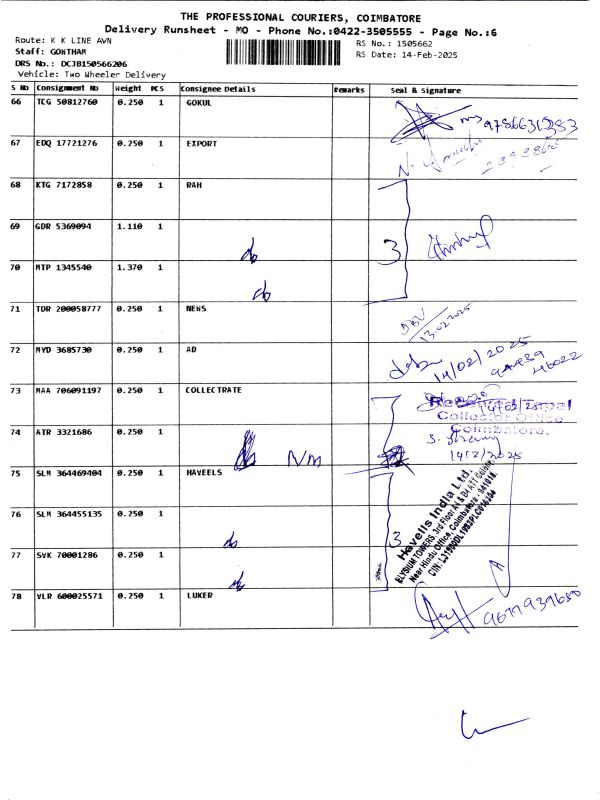 THE PROFESSIONAL COURIERS, COIMBATORE
Delivery Runsheet - MO - Phone No.:0422-3505555 - Page No.:6
Route: K K LINE AVN
RS No.: 1505662
Staff: GOWTHAM
RS Date: 14-Feb-2025
DRS No.: DCJB150566206
Vehicle: Two Wheeler Delivery
S No Consignment No Weight PCS Consignee Details Remarks Seal & Signature
66 TCG 50812760 0.250 1 GOKUL
67 EDQ 17721276 0.250 1 EXPORT
68 KTG 7172858 0.250 1 RAH
69 GDR 5369094 1.110 1
3
70 MTP 1345540 1.370 1
71 TDR 200058777 0.250 1 NEWS
13.02.2025
72 MYD 3685730 0.250 1 AD
14/02/2025
73 MAA 706091197 0.250 1 COLLECTRATE
Collector Office
Coimbatore,
74 ATR 3321686 0.250 1
14/2/2025
75 SLM 364469404 0.250 1 HAVEELS
Havells India Ltd.
76 SLM 364455135 0.250 1
3
77 SVK 70001286 0.250 1
78 VLR 600025571 0.250 1 LUKER